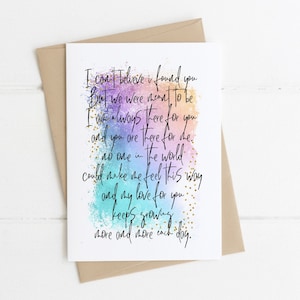 I can't believe i found you
But we were meant to be
I am always there for you
and you are there for me
no one in the world
could make me feel this way
and my love for you
keeps growing
more and more each day.